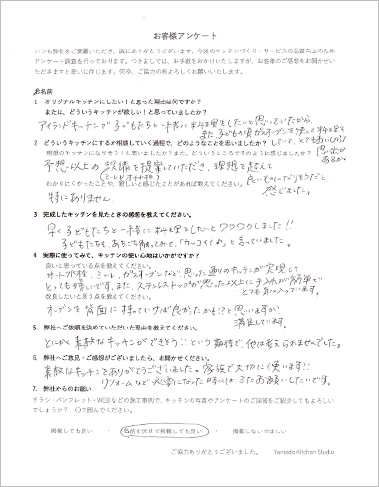 お客様アンケート
いつも弊社をご愛顧いただき、誠にありがとうございます。今後のキッチンづくり・サービスの品質向上のため
アンケート調査を行っております。つきましては、お手数をおかけいたしますが、お客様のご感想をお聞かせい
ただきますと幸いに存じます。何卒、ご協力のほどよろしくお願いいたします。
お名前
1 オリジナルキッチンにしたい!と思った理由は何ですか?
または、どういうキッチンが欲しい!と思っていましたか?
アイランドキッチンで子どもたちと一緒に料理をしたいと思っていたから。
また、子どもが
2 どういうキッチンにするか相談していく過程で、どのようなことを思いましたか?
理想のキッチンになりそう!と思いましたか?また、どういうところでそのように感じましたか?
予想以上の設備を提案していただき、理想を超えて
良いものになりそうだと
感じました。
わかりにくかったことや、難しいと感じたことがあれば教えてください。
特にありません。
3 完成したキッチンを見たときの感想を教えてください。
早く子どもたちと一緒に料理をしたいとワクワクしました!!
子どもたちも、あちこち触ってみて、「カッコイイ♪」と言っていました。
4 実際に使ってみて、キッチンの使い心地はいかがですか?
良いに思っている点を教えてください。
オート水栓、ミーレ、ガスオーブンなど、思った通りのキッチンが実現して
とっても嬉しいです。また、ステンレストップが思った以上に手入れが簡単で
とても気に入っています。
改良したいと思う点を教えてください。
オーブンを背面に持っていけば良かったかも!?と思いますが、
満足しています。
5 弊社へご依頼を決めていただいた理由を教えてください。
とにかく素敵なキッチンができそう!!という期待で、他は考えられませんでした。
6 弊社へご意見・ご感想がございましたら、お聞かせください。
素敵なキッチンをありがとうございました。家族で大切に使います!!
リフォームなど必要になった時には、またお願いしたいです。
7 弊社からのお願い
チラシ・パンフレット・WEBなどの施工事例で、キッチンの写真やアンケートのご回答をご紹介してもよろしい
でしょうか? ○で囲んでください。
掲載しても良い ・ 名前を伏せて掲載しても良い ・ 掲載しないでほしい
ご協力ありがとうございました。 Yamada Kitchen Studio